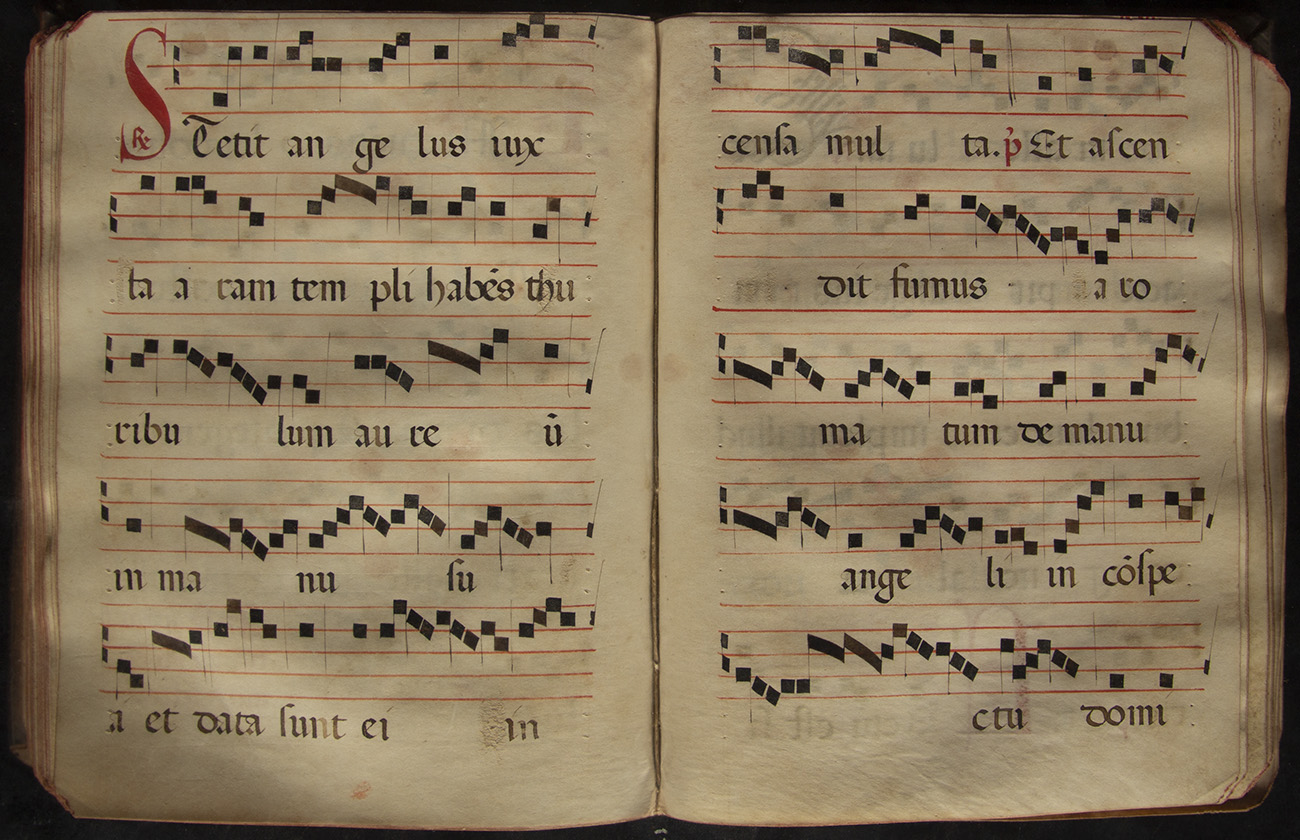 Re Stetit an ge lus iux
ta a ram tem pli habēs thu
ribu lum au re ū
in ma nu su
a et data sunt ei in
censa mul ta. p̄ Et ascen
dit fumus a ro
ma tum de manu
ange li in cōspe
ctu domi